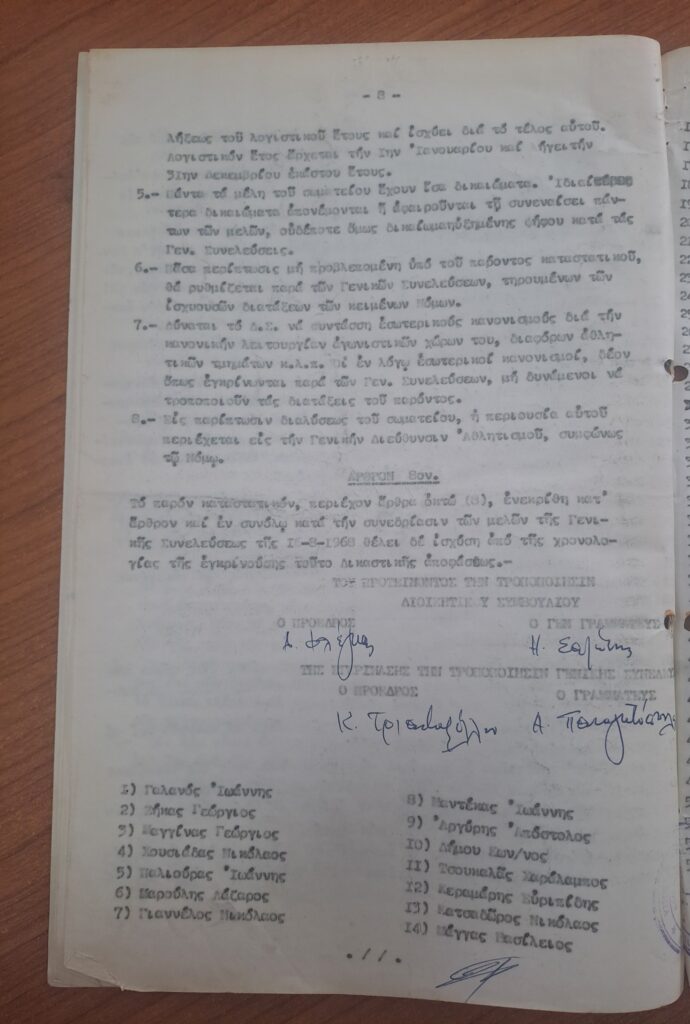 - 8 -
λήξεως τοῦ λογιστικοῦ ἔτους καί ἰσχύει διά τό τέλος αὐτοῦ.
Λογιστικόν ἔτος ἄρχεται τήν 1ην Ἰανουαρίου καί λήγει τήν
31ην Δεκεμβρίου ἑκάστου ἔτους.
5.- Πάντα τά μέλη τοῦ σωματείου ἔχουν ἴσα δικαιώματα. Ἰδιαί
τερα δικαιώματα ἀπονέμονται ἤ ἀφαιροῦνται τῇ συναινέσει πάν-
των τῶν μελῶν, οὐδέποτε ὅμως ψήφου κατά τάς
Γεν. Συνελεύσεις.
6.- Πᾶσα περίπτωσις μή προβλεπομένη ὑπό τοῦ παρόντος καταστατικοῦ,
θά ρυθμίζεται παρά τῶν Γενικῶν Συνελεύσεων, τηρουμένων τῶν
ἰσχυουσῶν διατάξεων τῶν κειμένων Νόμων.
7.- Δύναται τό Δ.Σ. νά συντάσση ἐσωτερικούς κανονισμούς διά τήν
κανονικήν λειτουργίαν ἀγωνιστικῶν χώρων του, διαφόρων ἀθλη-
τικῶν τμημάτων κ.λ.π. Οἱ ἐν λόγῳ ἐσωτερικοί κανονισμοί, δέον
ὅπως ἐγκρίνωνται παρά τῶν Γεν. Συνελεύσεων, μή δυνάμενοι νά
τροποποιοῦν τάς διατάξεις τοῦ παρόντος.
8.- Εἰς περίπτωσιν διαλύσεως τοῦ σωματείου, ἡ περιουσία αὐτοῦ
περιέχεται εἰς τήν Γενικήν Διεύθυνσιν Ἀθλητισμοῦ, συμφώνως
τῷ Νόμῳ.
ΑΡΘΡΟΝ 8ον.
Τό παρόν καταστατικόν, περιέχον ἄρθρα ὀκτώ (8), ἐνεκρίθη κατ'
ἄρθρον καί ἐν συνόλῳ κατά τήν συνεδρίασιν τῶν μελῶν τῆς Γενι-
κῆς Συνελεύσεως τῆς -8-1968 θέλει δέ ἰσχύση ἀπό τῆς χρονολο-
γίας τῆς ἐγκρινούσης τοῦτο Δικαστικῆς ἀποφάσεως.-
ΤΟΥ ΠΡΟΤΕΙΝΟΝΤΟΣ ΤΗΝ ΤΡΟΠΟΠΟΙΗΣΙΝ
ΔΙΟΙΚΗΤΙΚΟΥ ΣΥΜΒΟΥΛΙΟΥ
Ο ΠΡΟΕΔΡΟΣ Ο ΓΕΝ ΓΡΑΜΜΑΤΕΥΣ
ΤΗΣ ΕΓΚΡΙΝΑΣΗΣ ΤΗΝ ΤΡΟΠΟΠΟΙΗΣΙΝ ΓΕΝΙΚΗΣ ΣΥΝΕΛΕΥ
Ο ΠΡΟΕΔΡΟΣ Ο ΓΡΑΜΜΑΤΕΥΣ
1) Γαλανός Ἰωάννης
2) Ζήκας Γεώργιος
3) Μαγγίνας Γεώργιος
4) Χουσιάδας Νικόλαος
5) Παλιούρας Ἰωάννης
6) Μαρούλης Λάζαρος
7) Γιαννέλος Νικόλαος
8) Μαντέκας Ἰωάννης
9) Ἀργύρης Ἀπόστολος
10) Δήμου Κων/νος
11) Τσουκαλᾶς Χαράλαμπος
12) Κεραμάρης Εὐριπίδης
13) Κατσαδῶρος Νικόλαος
14) Μάγγας Βασίλειος
.//.